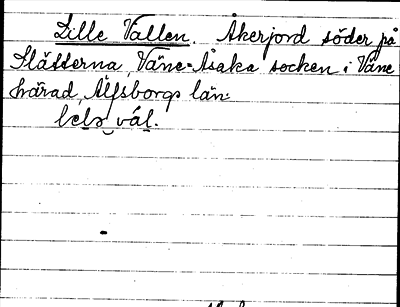 Lille Vallen. Åkerjord söder på
Slätterna, Väne-Åsaka socken i Väne
härad, Älfsborgs län: